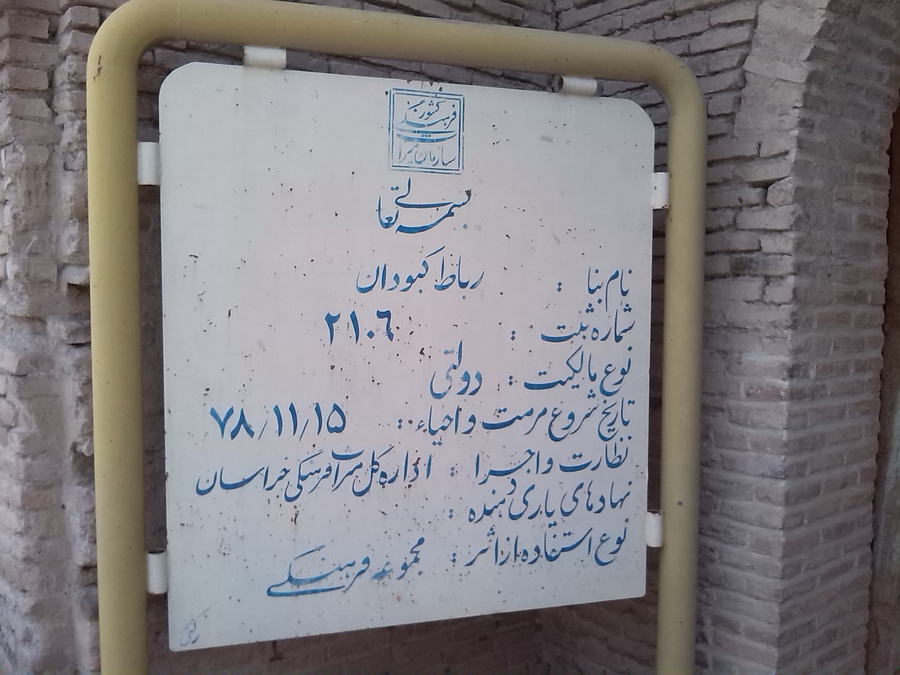 سازمان میراث فرهنگی کشور
بسمه تعالی
نام بنا : رباط کبودان
شماره ثبت : ۲۱۰۶
نوع مالکیت : دولتی
تاریخ شروع مرمت و احیاء : ۷۸/۱۱/۱۵
نظارت و اجرا : اداره کل میراث فرهنگی خراسان
نهادهای یاری دهنده :
نوع استفاده از اثر : مجموعه فرهنگی